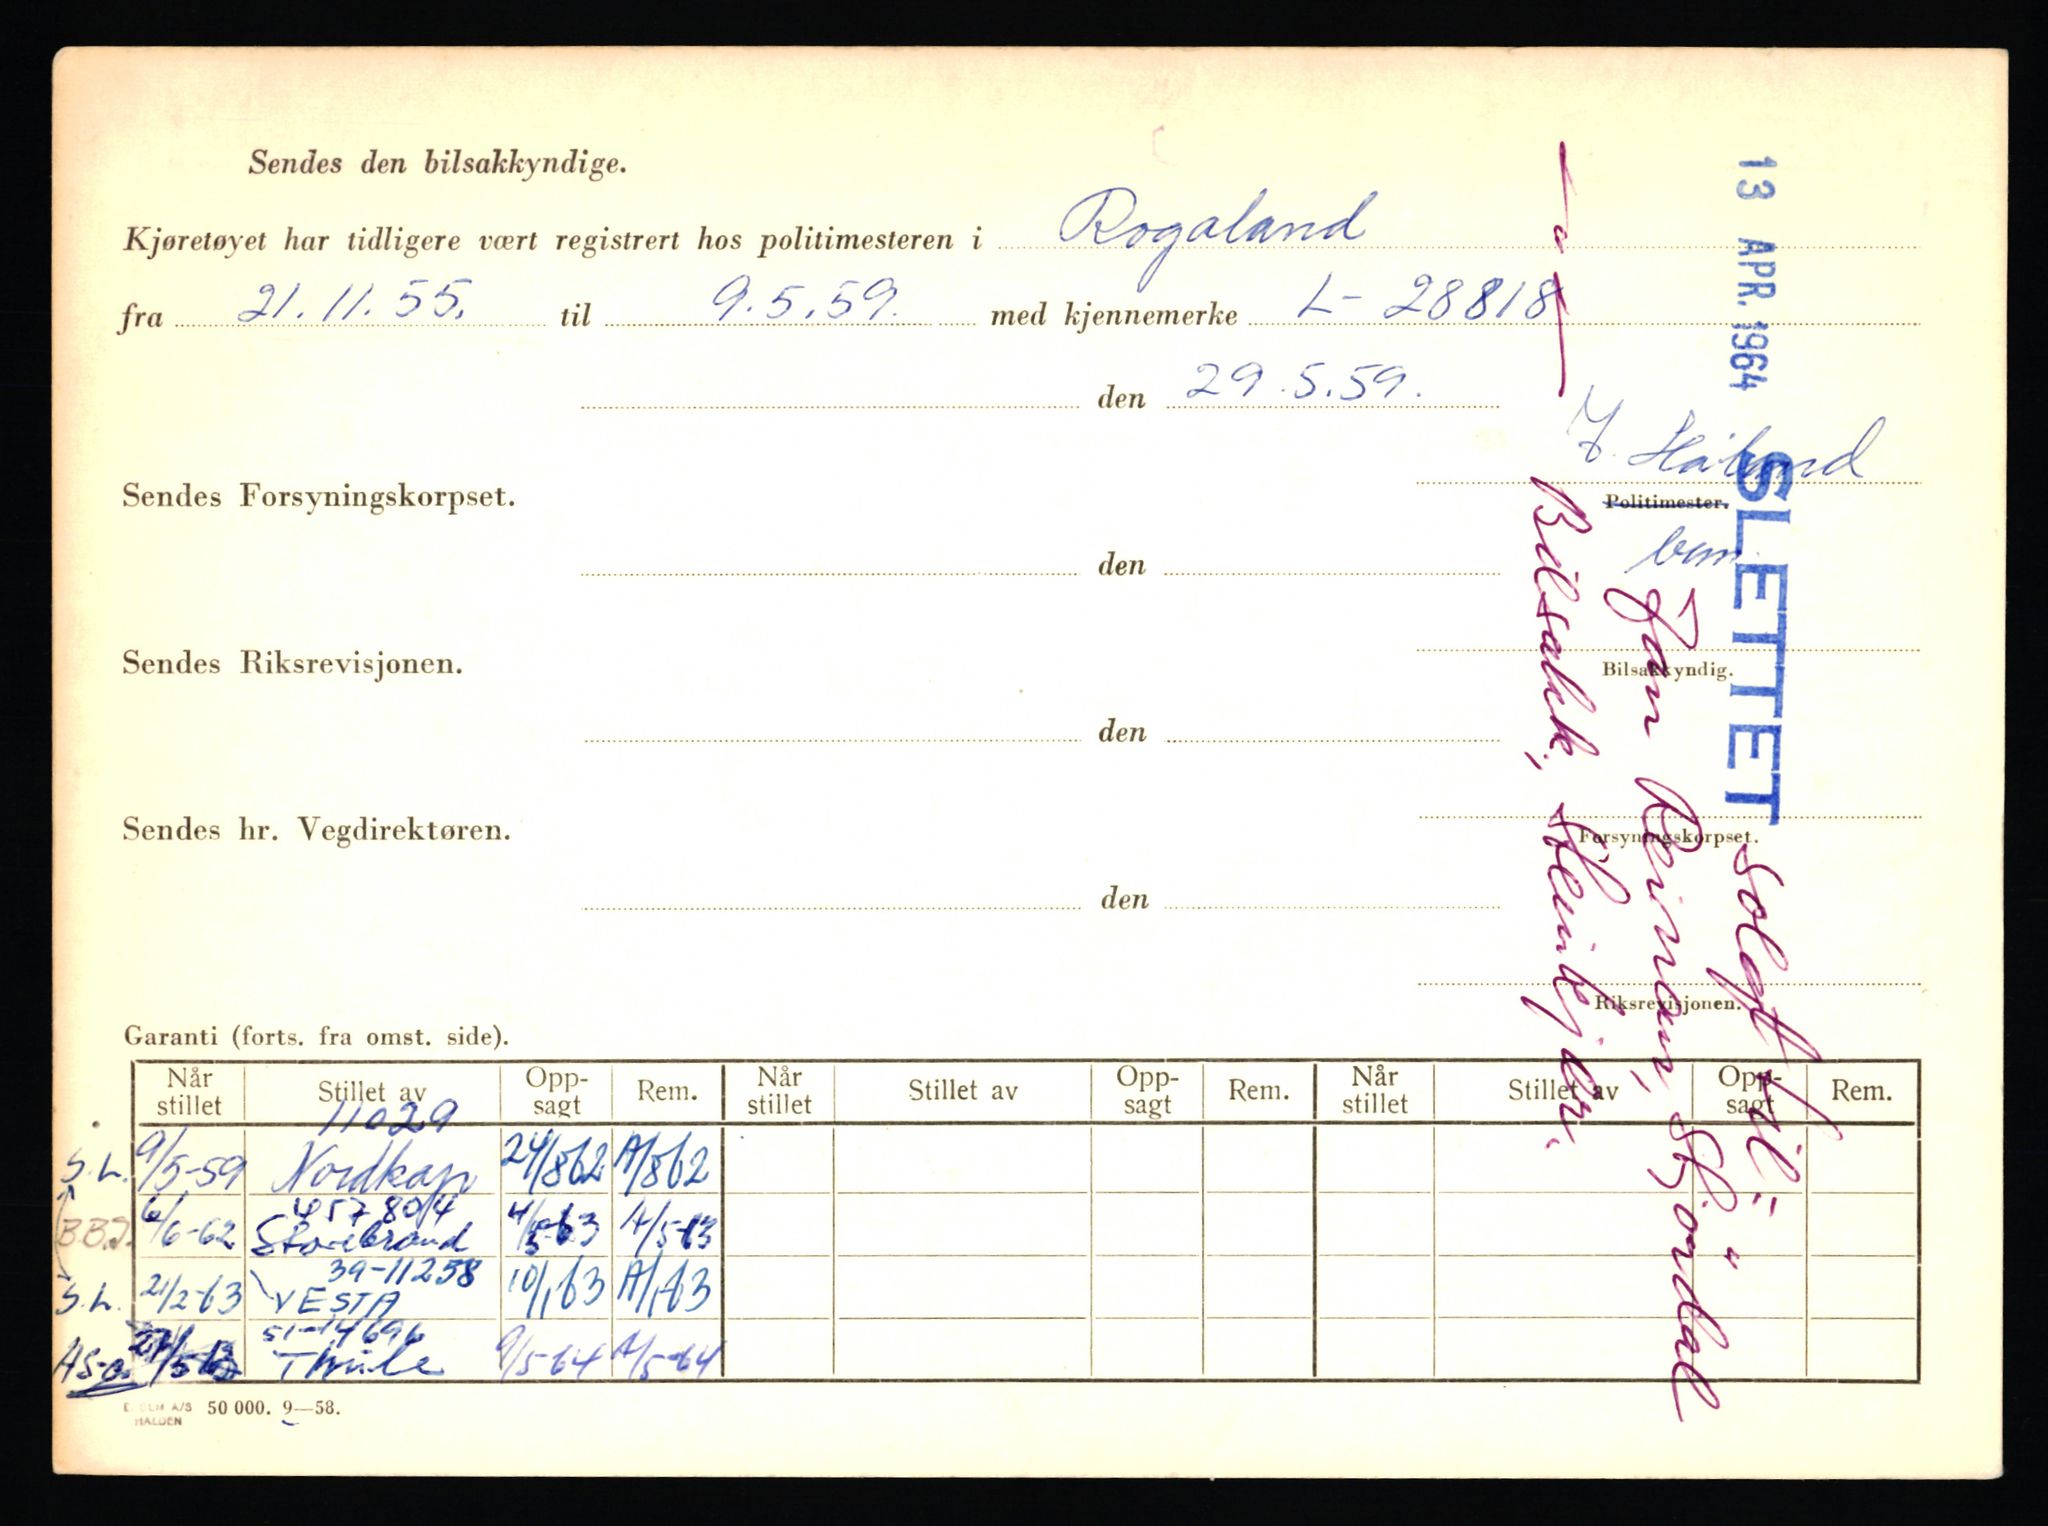 Sendes den bilsakkyndige.
Kjøretøyet har tidligere vært registrert hos politimesteren i Rogaland
fra 21.11.55. til 9.5.59. med kjennemerke L- 28818
den 29.5.59.
Håland
Sendes Forsyningskorpset.
Politimester.
den
Sendes Riksrevisjonen.
Bilsakkyndig.
den
Sendes hr. Vegdirektøren.
Forsyningskorpset.
den
Riksrevisjonen.
13 APR. 1964 SLETTET
Solgt til:
Jan Reinan, Stjördal
Bilsakk. Steinkjer.
Garanti (forts. fra omst. side).
Når stillet Stillet av Opp-sagt Rem. Når stillet Stillet av Opp-sagt Rem. Når stillet Stillet av Opp-sagt Rem.
11029
S.L. 9/5-59 Nordkap 24/8 62 A/8 62
457804
B.B.S. 6/6-62 Storebrand 4/5-63 A/5-63
39-11258
S.L. 21/2-63 VESTA 10/1 63 A/1-63
51-14696
27/5 63 Thule 9/5-64 A/5-64
HALDEN 50 000. 9—58.